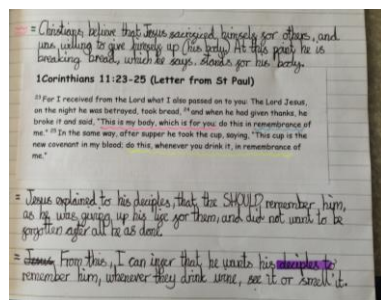 = Christians, believe that Jesus sacrificed, himself for others, and
was willing to give himself up (his body). At this point he is
breaking bread, which he says, stands for his body.
1Corinthians 11:23-25 (Letter from St Paul)
23 For I received from the Lord what I also passed on to you: The Lord Jesus,
on the night he was betrayed, took bread, 24 and when he had given thanks, he
broke it and said, "This is my body, which is for you; do this in remembrance of
me." 25 In the same way, after supper he took the cup, saying, "This cup is the
new covenant in my blood; do this, whenever you drink it, in remembrance of
me."
= Jesus explained to his deciples, that, the SHOULD, remember him,
as he was giving up his life for them, and did not want to be
forgotten after all he as done.
= From this, I can infer that he wants his deciples to
remember him, whenever they drink wine, see it or smell it.